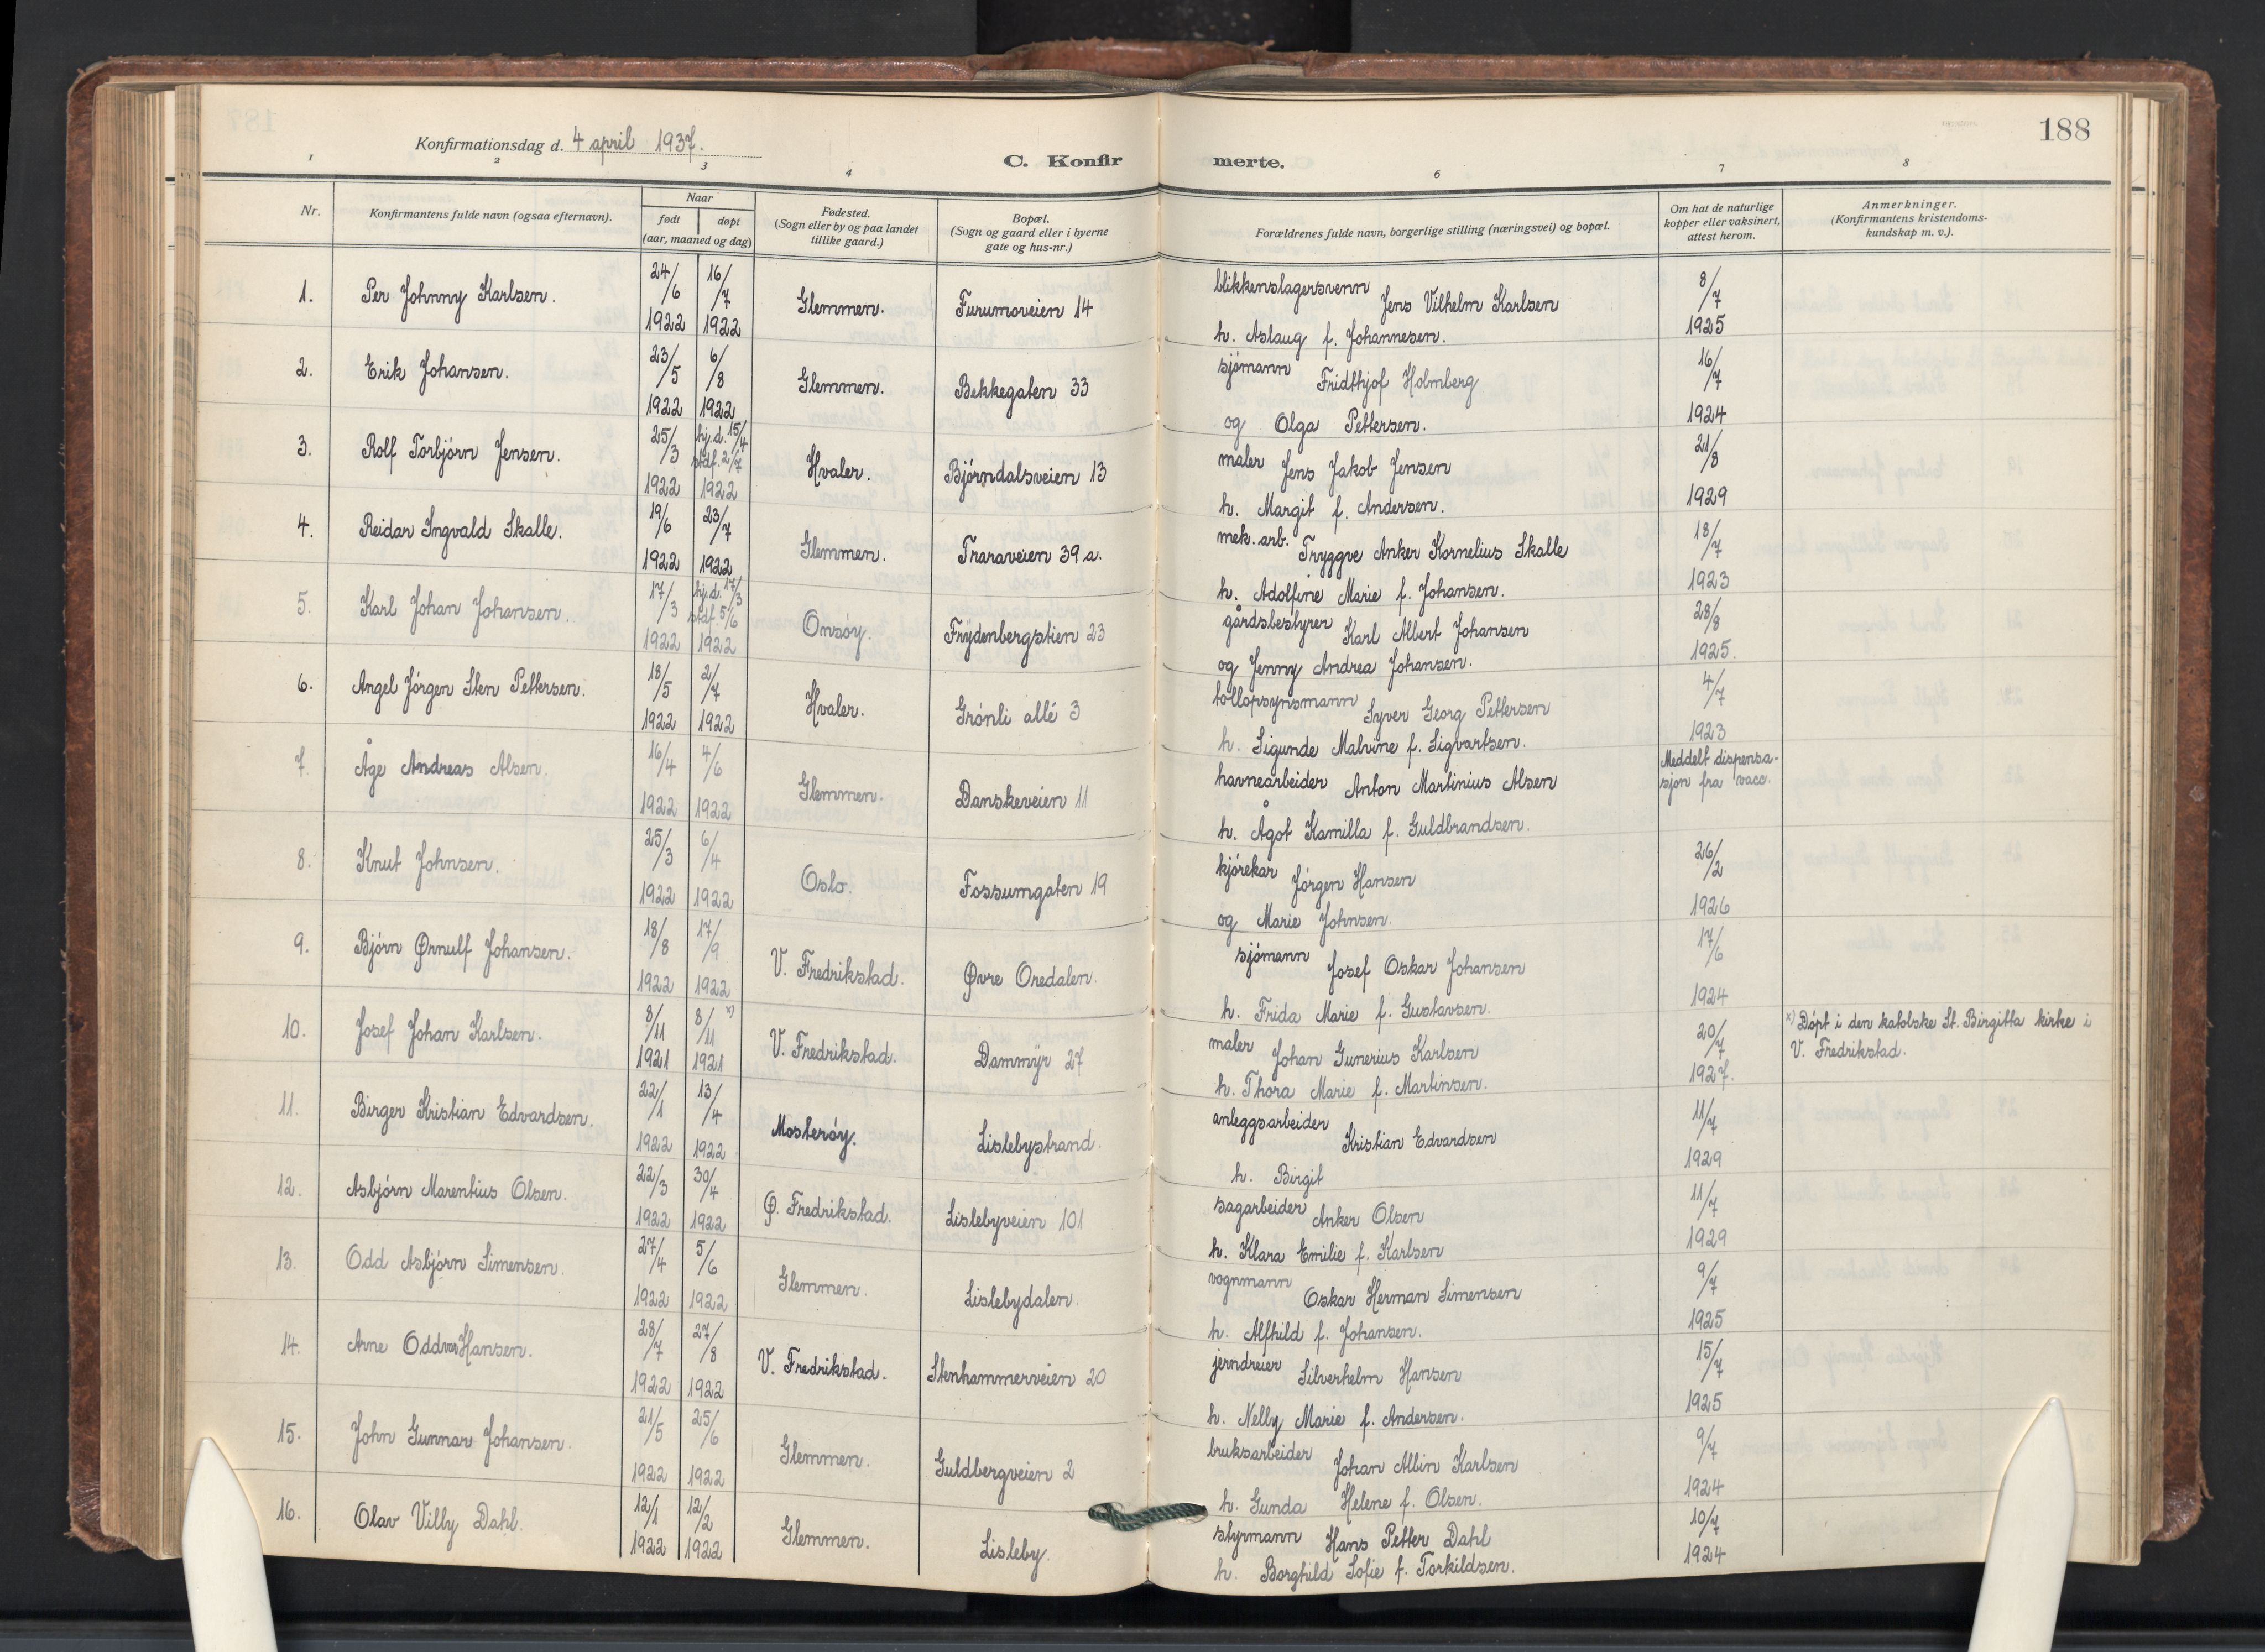 188
Konfirmationsdag d. 4 april 1937.
C. Konfirmerte.
1 2 3 4 6 7 8
Nr.
Konfirmantens fulde navn (ogsaa efternavn).
Naar
født døpt
(aar, maaned og dag)
Fødested.
(Sogn eller by og paa landet
tillike gaard.)
Bopæl.
(Sogn og gaard eller i byerne
gate og hus-nr.)
Forældrenes fulde navn, borgerlige stilling (næringsvei) og bopæl.
Om hat de naturlige
kopper eller vaksinert,
attest herom.
Anmerkninger.
(Konfirmantens kristendoms-
kundskap m. v.).
1. Per Johnny Karlsen. 24/6 1922 16/7 1922 Glemmen. Furumoveien 14 blikkenslagersvenn Jens Vilhelm Karlsen 8/7
h. Aslaug f. Johannesen. 1925
2. Erik Johansen. 23/5 1922 6/8 1922 Glemmen. Bekkegaten 33 sjømann Fridthjof Holmberg 16/7
og Olga Pettersen. 1924
3. Rolf Torbjørn Jensen. 25/3 1922 hj.d. 15/4 stdf. 2/7 1922 Hvaler. Bjørndalsveien 13 maler Jens Jakob Jensen 21/8
h. Margit f. Andersen. 1929
4. Reidar Ingvald Skalle. 19/6 1922 23/7 1922 Glemmen. Traraveien 39 a. mek. arb. Tryggve Anker Kornelius Skalle 18/7
h. Adolfine Marie f. Johansen. 1923
5. Karl Johan Johansen. 17/3 1922 hj.d. 17/3 stdf. 5/6 1922 Onsøy. Frydenbergstien 23 gårdsbestyrer Karl Albert Johansen 28/8
og Jenny Andrea Johansen. 1925.
6. Angel Jørgen Sten Pettersen. 18/5 1922 2/7 1922 Hvaler. Grønli allé 3 tollopsynsmann Syver Georg Pettersen 4/7
h. Sigunde Malvine f. Sigvartsen. 1923
7. Åge Andreas Alsen. 16/4 1922 4/6 1922 Glemmen. Danskeveien 11 havnearbeider Anton Martinius Alsen Meddelt dispensa-
sjon fra vacc.
h. Ågot Kamilla f. Guldbrandsen.
8. Knut Johnsen. 25/3 1922 6/4 1922 Oslo. Fossumgaten 19 kjørekar Jørgen Hansen 26/2
og Marie Johnsen. 1926
9. Bjørn Ørnulf Johansen. 18/8 1922 17/9 1922 V. Fredrikstad. Øvre Oredalen. sjømann Josef Oskar Johansen 17/6
h. Frida Marie f. Gustavsen. 1924
10. Josef Johan Karlsen. 8/11 1921 8/11 x) 1921 V. Fredrikstad. Dammyr 27 maler Johan Gunerius Karlsen 20/7 x) Døpt i den katolske St. Birgitta kirke i
h. Thora Marie f. Martinsen. 1927. V. Fredrikstad.
11. Birger Kristian Edvardsen. 22/1 1922 13/4 1922 Mosterøy. Lislebystrand. anleggsarbeider Kristian Edvardsen 11/7
h. Birgit 1929
12. Asbjørn Marentius Olsen. 22/3 1922 30/4 1922 Ø. Fredrikstad. Lislebyveien 101 sagarbeider Anker Olsen 11/7
h. Klara Emilie f. Karlsen 1929
13. Odd Asbjørn Simensen. 27/4 1922 5/6 1922 Glemmen. Lislebydalen. vognmann Oskar Herman Simensen 9/7
h. Alfhild f. Johansen. 1925
14. Arne Oddvar Hansen. 28/7 1922 27/8 1922 V. Fredrikstad. Stenhammerveien 20 jerndreier Silverhelm Hansen 15/7
h. Nelly Marie f. Andersen. 1925
15. John Gunnar Johansen. 21/5 1922 25/6 1922 Glemmen. Guldbergveien 2 bruksarbeider Johan Albin Karlsen 9/7
h. Gunda Helene f. Olsen. 1924
16. Olav Villy Dahl. 12/1 1922 12/2 1922 Glemmen. Lisleby. styrmann Hans Petter Dahl 10/7
h. Borghild Sofie f. Torkildsen. 1924